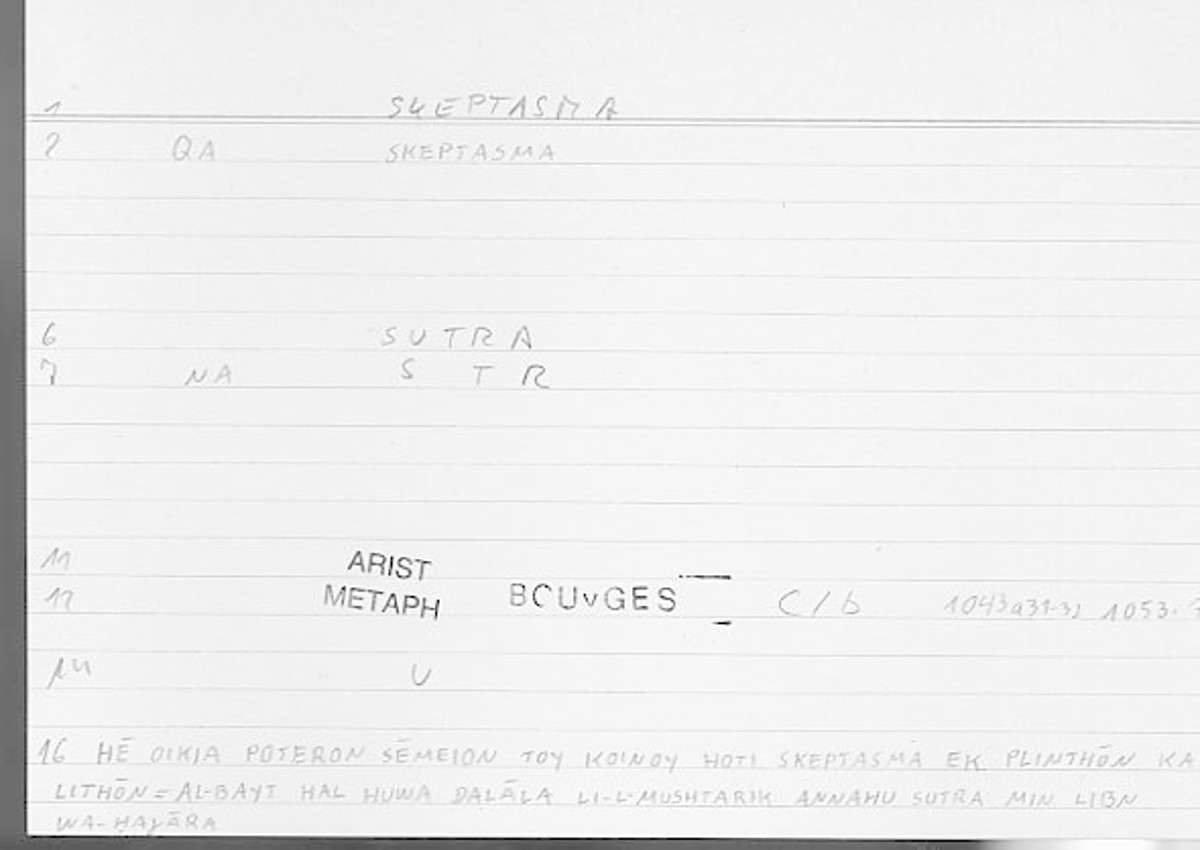 1 SKEPTASMA
2 QA SKEPTASMA
6 SUTRA
7 NA S T R
11 ARIST
12 METAPH BOUYGES C/b 1043a31-32 1053.
14 U
16 HĒ OIKIA POTERON SĒMEION TOY KOINOY HOTI SKEPTASMA EK PLINTHŌN KA
LITHŌN = AL-BAYT HAL HUWA DALĀLA LI-L-MUSHTARIK ANNAHU SUTRA MIN LIBN
WA-ḤAǦĀRA